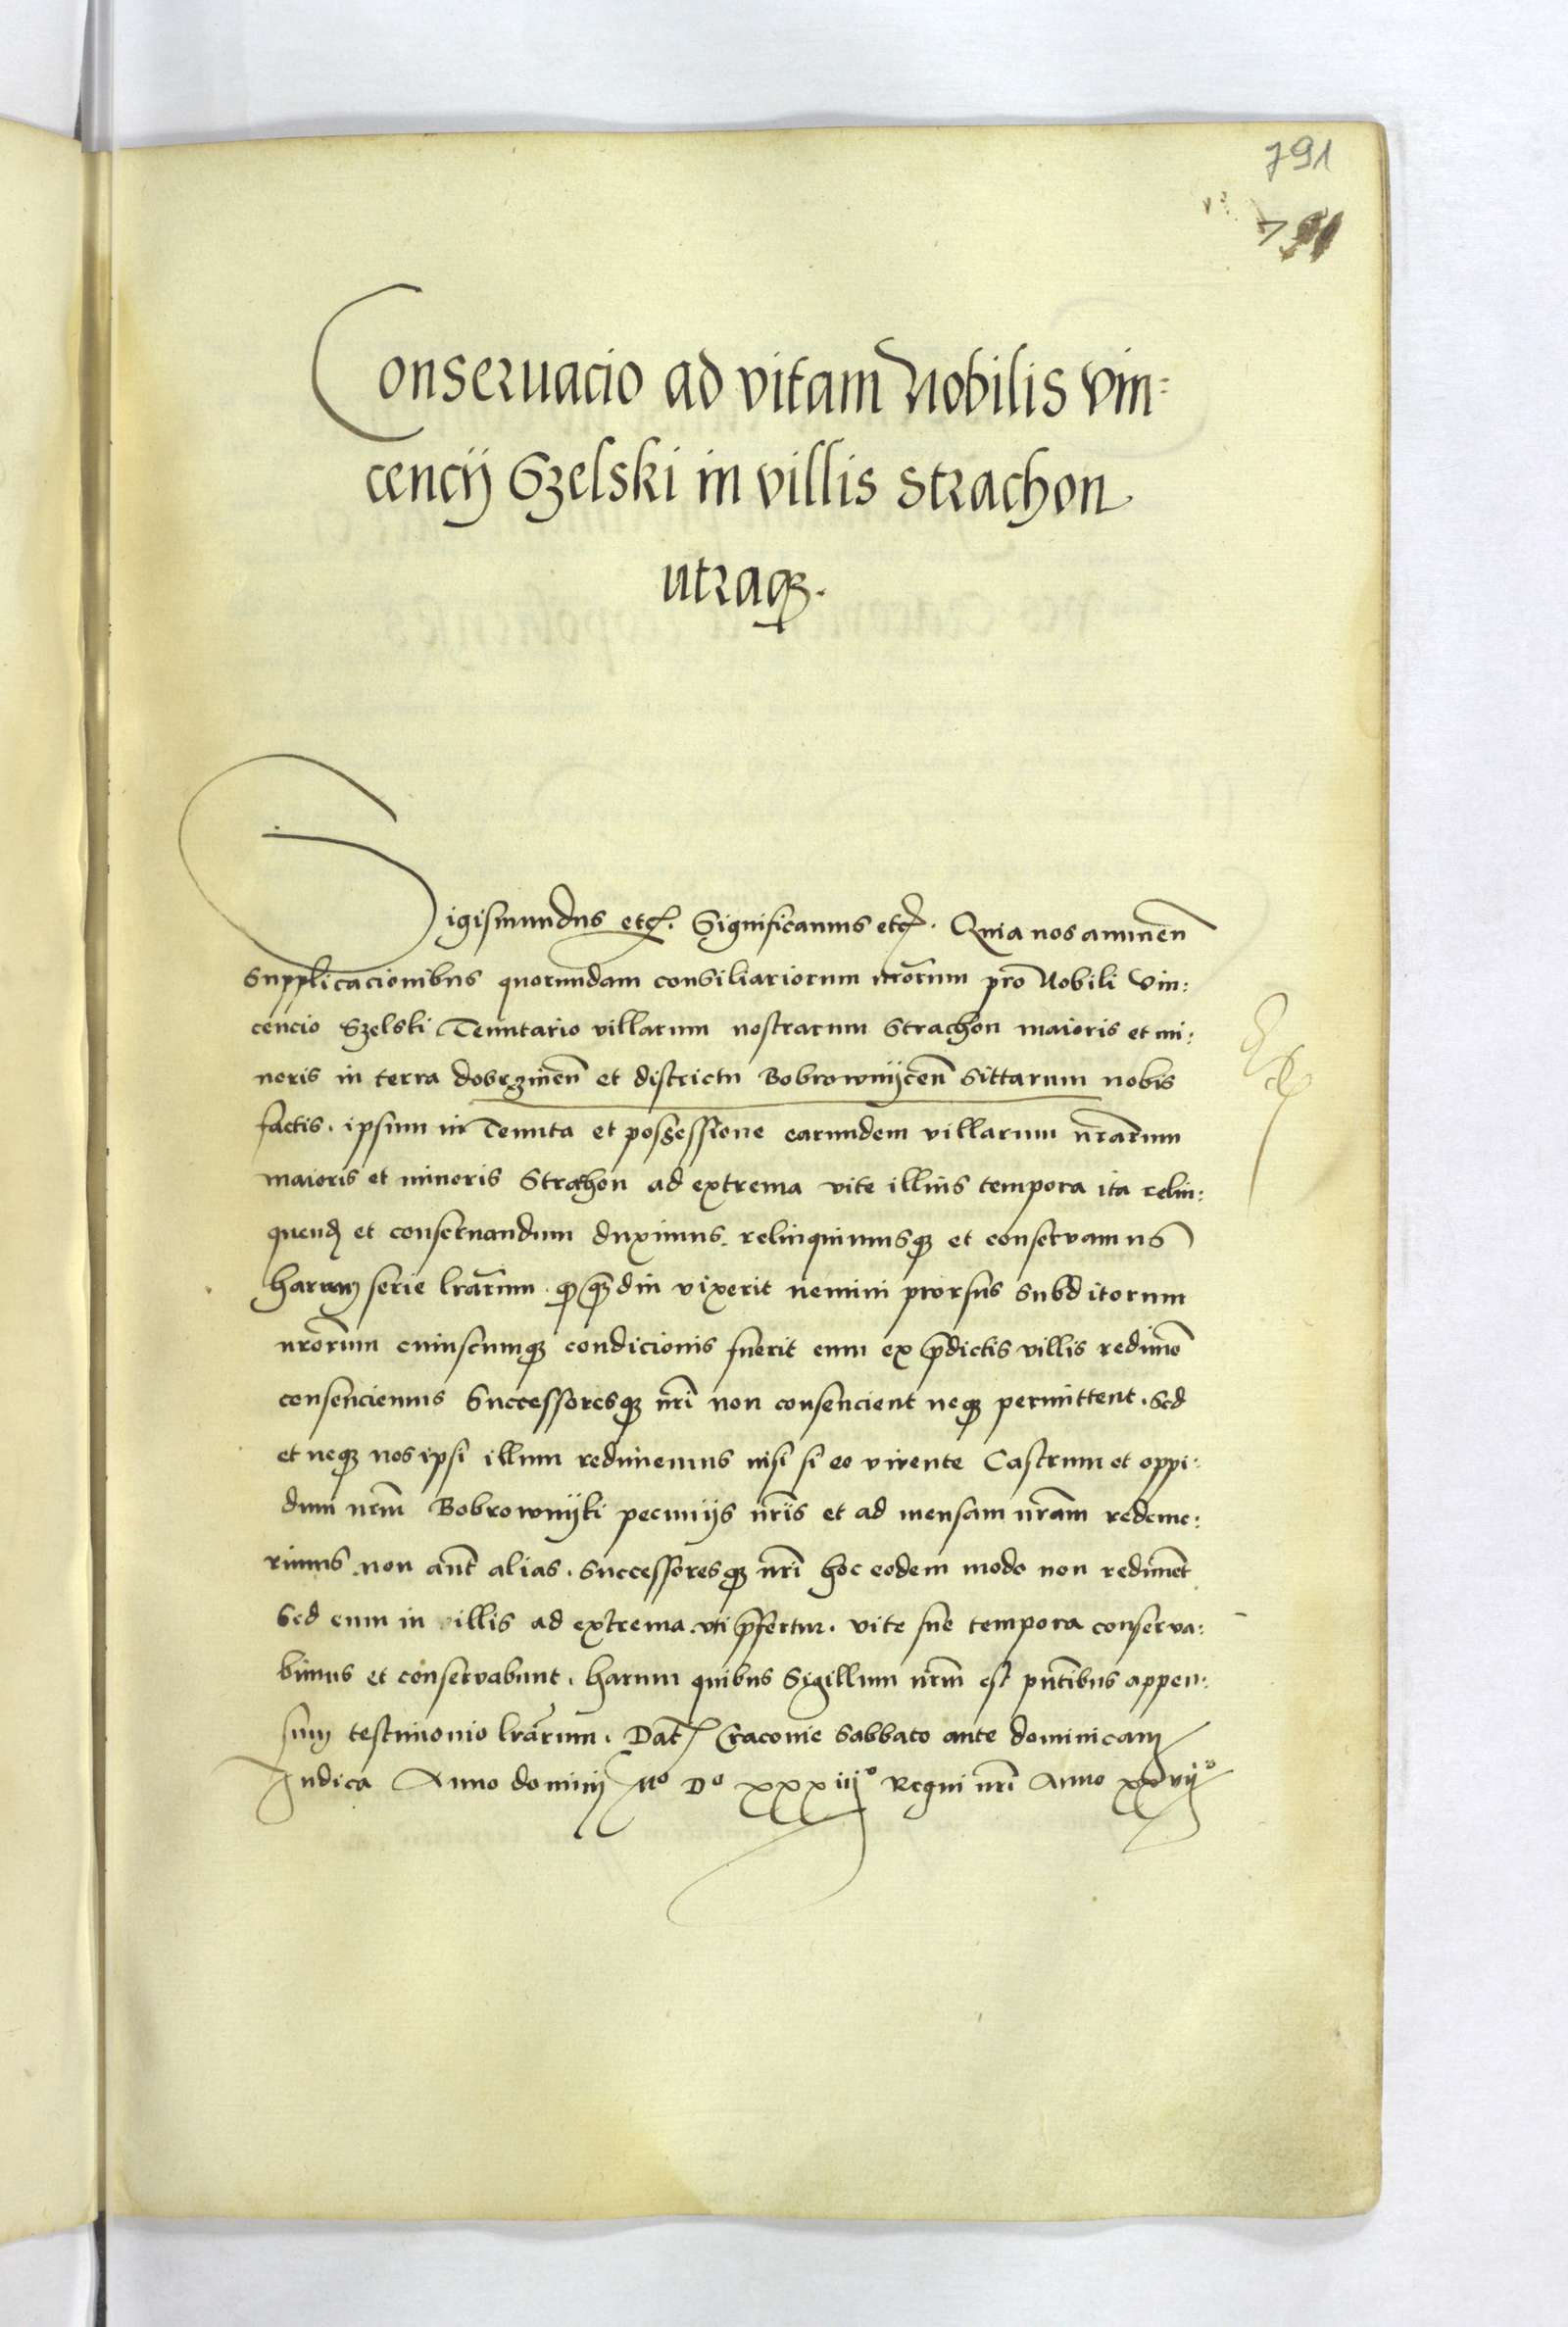 791
791
Conseruacio ad vitam Nobilis Vin:
cencij Szelski in villis Strachon
utraq3.
Sigismundus etc. Significamus etc. Quia nos annuen̄
supplicacionibus quorundam consiliariorum nr̄orum pro Nobili Vin:
cencio Szelski Tenutario villarum nostrarum Strachon maioris et mi:
noris in terra dobrzinen̄ et districtu Bobrownijcen̄ sittarum nobis
factis. ipsum in Tenuta et possessione earundem villarum nr̄arum
maioris et minoris Strachon ad extrema vite illius tempora ita relin:
quend et conseruandum duximus. relinquimusq3 et conservamus
harum serie lr̄arum. qđ q̄3diu vixerit nemini prorsus subditorum
nr̄orum cuiuscumq3 condicionis fuerit eum ex p̄dictis villis redimē
consenciemus Successoresq3 nr̄i non consencient neq3 permittent. Sed
et neq3 nos ipsi illum redimemus nisi si eo vivente Castrum et oppi:
dum nr̄m Bobrownijki pecunijs nr̄is et ad mensam nr̄am redeme:
rimus non aut̄ alias. Successoresq3 nr̄i hoc eodem modo non rediment̄
Sed eum in villis ad extrema. vti p̄fertur. vite sue tempora conserva:
bimus et conservabunt. harum quibus Sigillum nr̄m est pn̄tibus appen:
sum testimonio lr̄arum. Dat Cracovie Sabbato ante dominicam
Judica Anno domini Mo Do xxxiijo Regni nr̄i Anno xxvijo